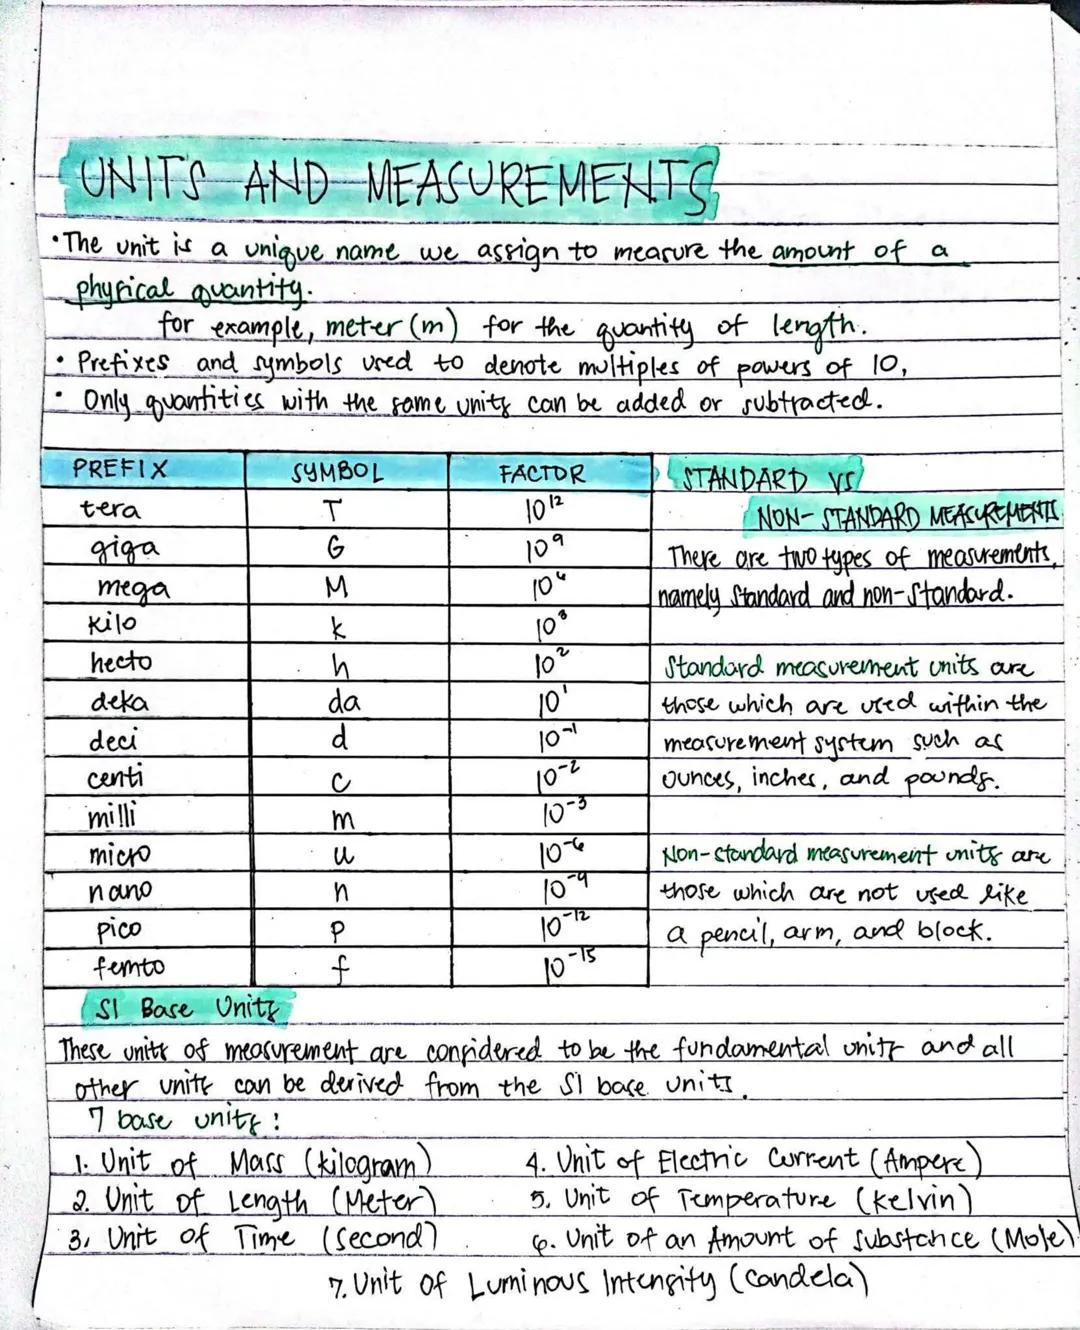 UNITS AND MEASUREMENTS
• The unit is a unique name we assign to measure the amount of a
physical quantity.
for example, meter (m) for the quantity of length.
• Prefixes and symbols used to denote multiples of powers of 10,
• Only quantities with the same units can be added or subtracted.
PREFIX SYMBOL FACTOR
tera T 10¹²
giga G 10⁹
mega M 10⁶
kilo k 10³
hecto h 10²
deka da 10¹
deci d 10⁻¹
centi c 10⁻²
milli m 10⁻³
micro u 10⁻⁶
nano n 10⁻⁹
pico p 10⁻¹²
femto f 10⁻¹⁵
STANDARD VS
NON-STANDARD MEASUREMENTS
There are two types of measurements,
namely standard and non-standard.
Standard measurement units are
those which are used within the
measurement system such as
ounces, inches, and pounds.
Non-standard measurement units are
those which are not used like
a pencil, arm, and block.
SI Base Units
These units of measurement are considered to be the fundamental units and all
other units can be derived from the SI base units.
7 base units:
1. Unit of Mass (kilogram)
2. Unit of Length (Meter)
3. Unit of Time (Second)
4. Unit of Electric Current (Ampere)
5. Unit of Temperature (kelvin)
6. Unit of an Amount of Substance (Mole)
7. Unit of Luminous Intensity (candela)